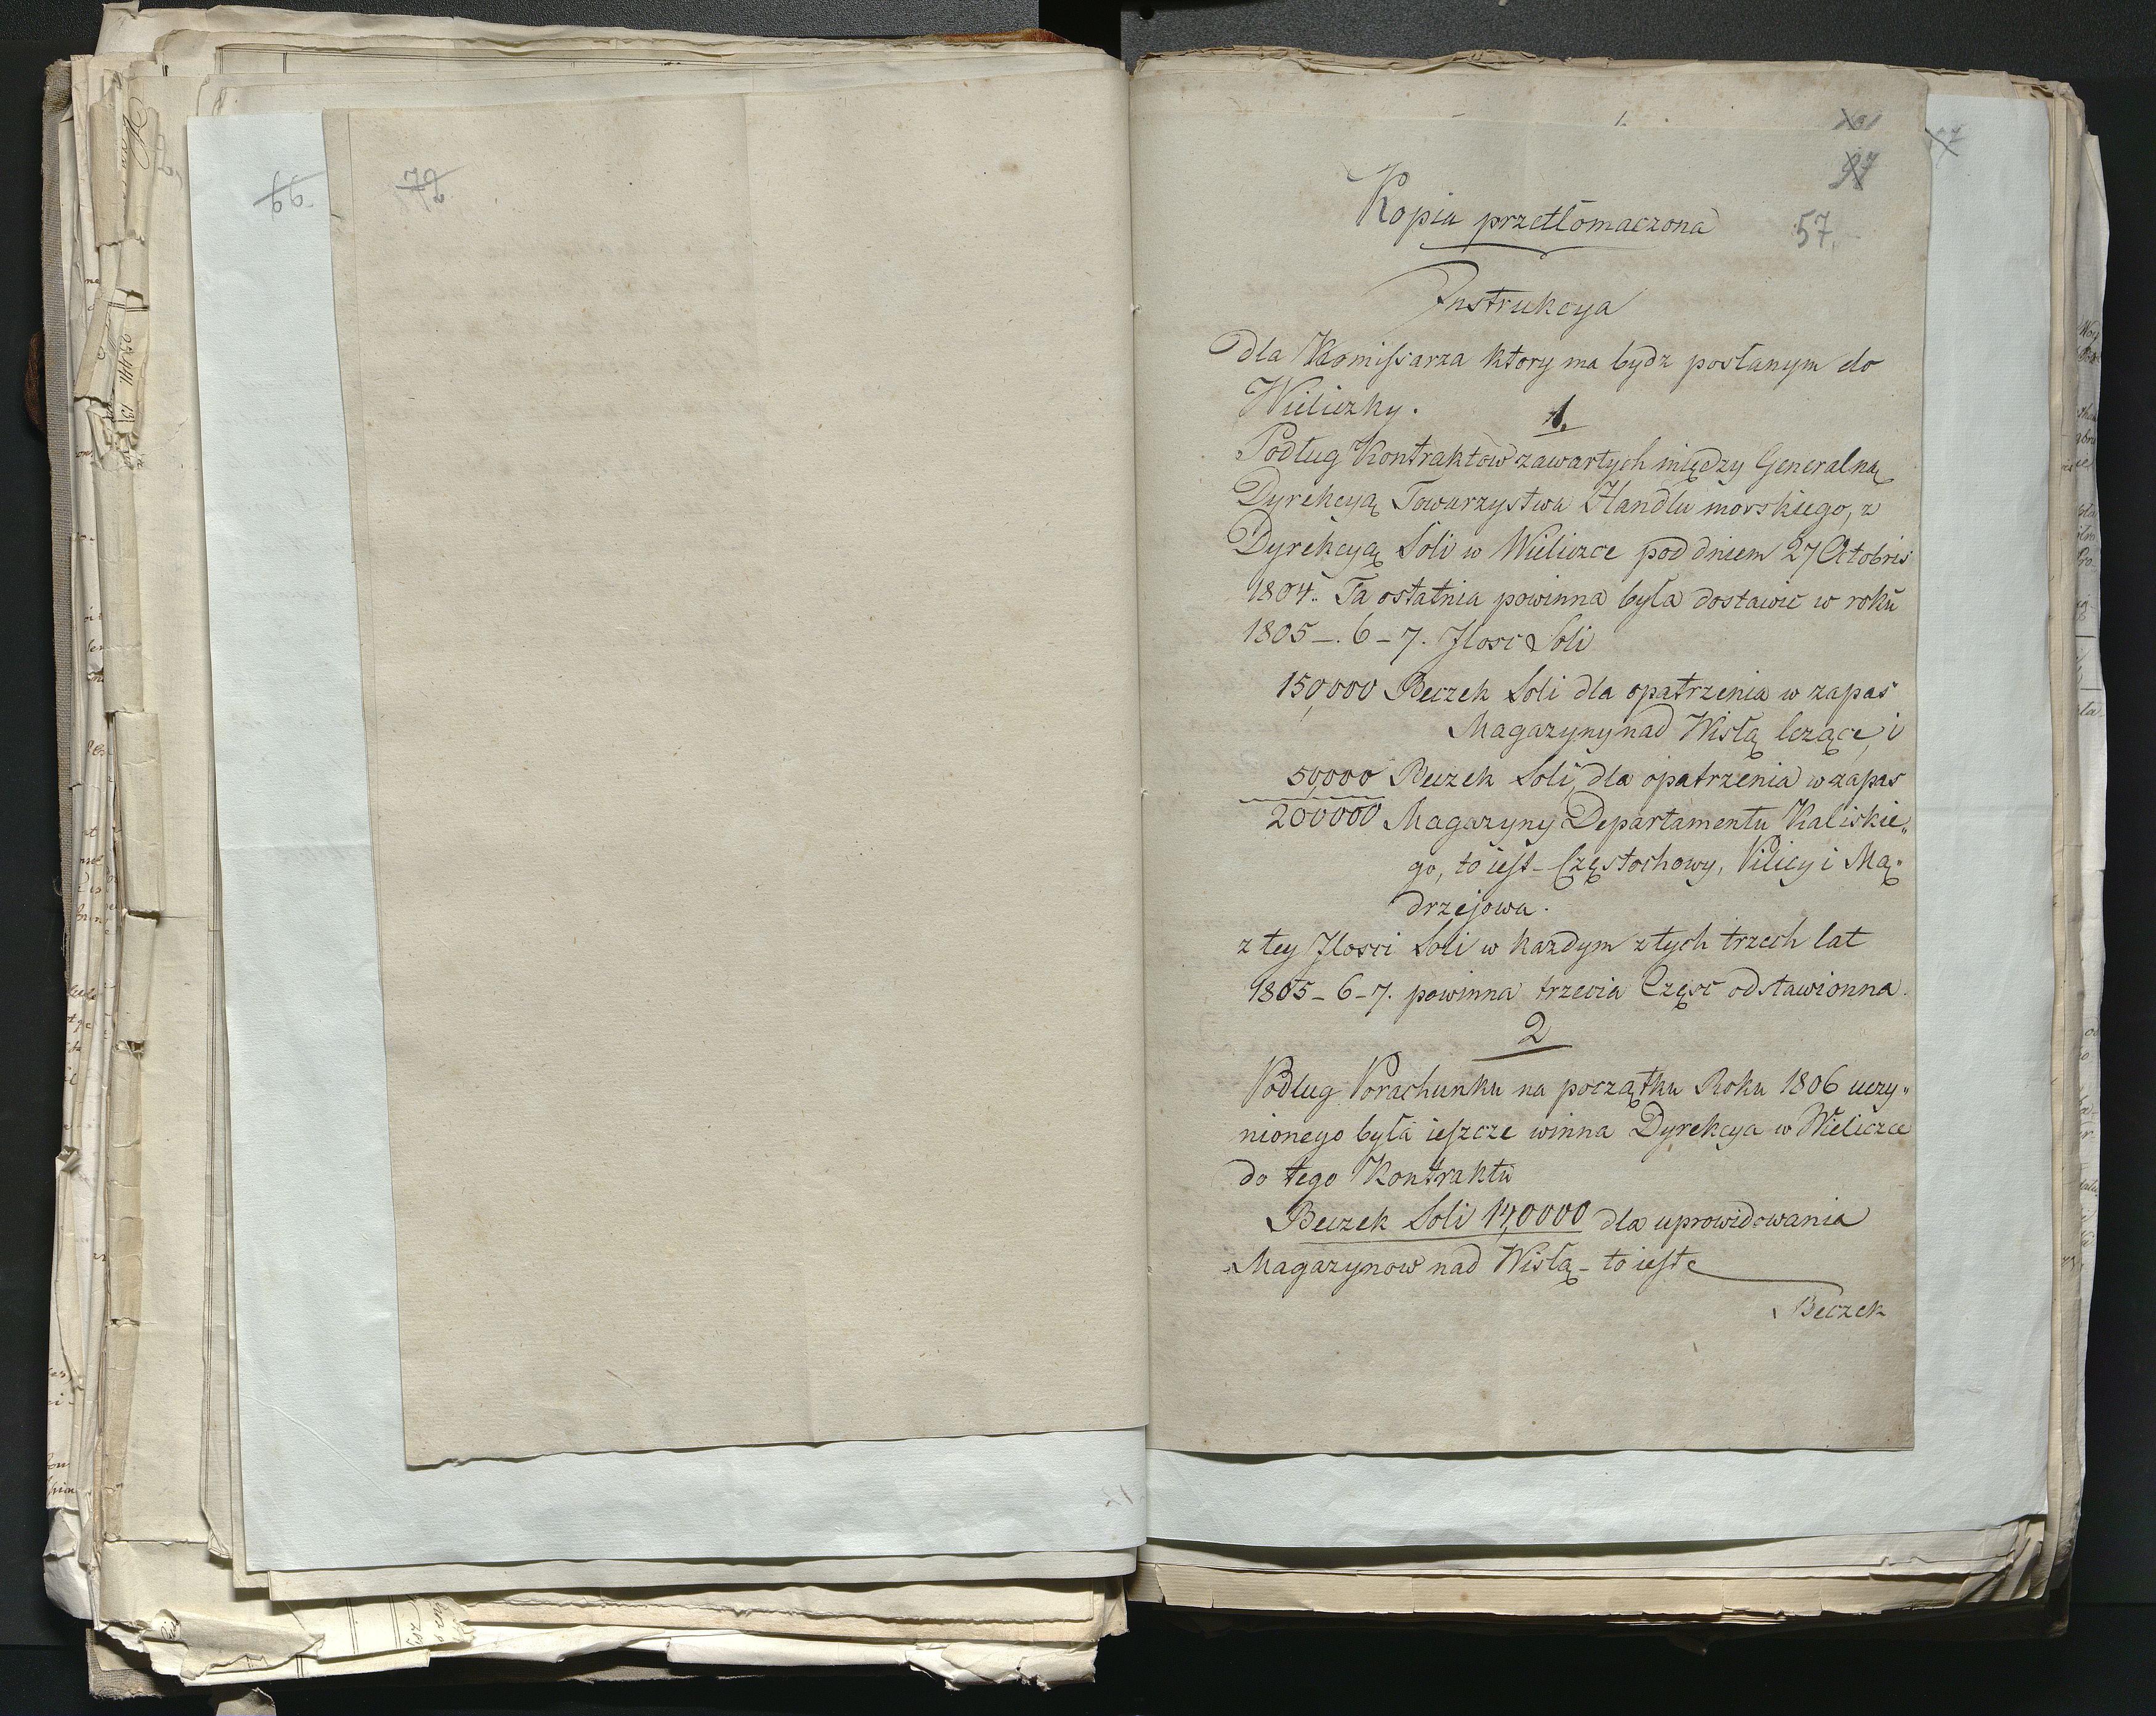 1.
97
57.
Kopia przetłomaczona
Instrukcya
dla Komissarza ktory ma bydz posłanym do
Wieliczky.
1.
Podług Kontraktow zawartych między Generalną
Dyrekcyą Towarzystwa Handlu morskiego, z
Dyrekcyą Soli w Wieliczce pod dniem 27 Octobris
1804. Ta ostatnia powinna była dostawic w roku
1805 - 6 - 7. Jlosc Soli
150,000 Beczek Soli dla opatrzenia w zapas
Magazyny nad Wisłą lezące, i
50,000 Beczek Soli, dla opatrzenia w zapas
200000 Magazyny Departamentu Kaliskie„
go, to iest - Częstochowy, Pilicy i Mą„
drzejowa.
z tey Jlosci Soli w kazdym z tych trzech lat
1805 - 6 - 7. powinna trzecia Częsc odstawionna.
2
Podług Porachunku na początku Roku 1806 uczy„
nionego była ieszcze winna Dyrekcya w Wieliczce
do tego Kontraktu
Beczek Soli 140000 dla uprowidowania
Magazynow nad Wisłą - to iest
Beczek